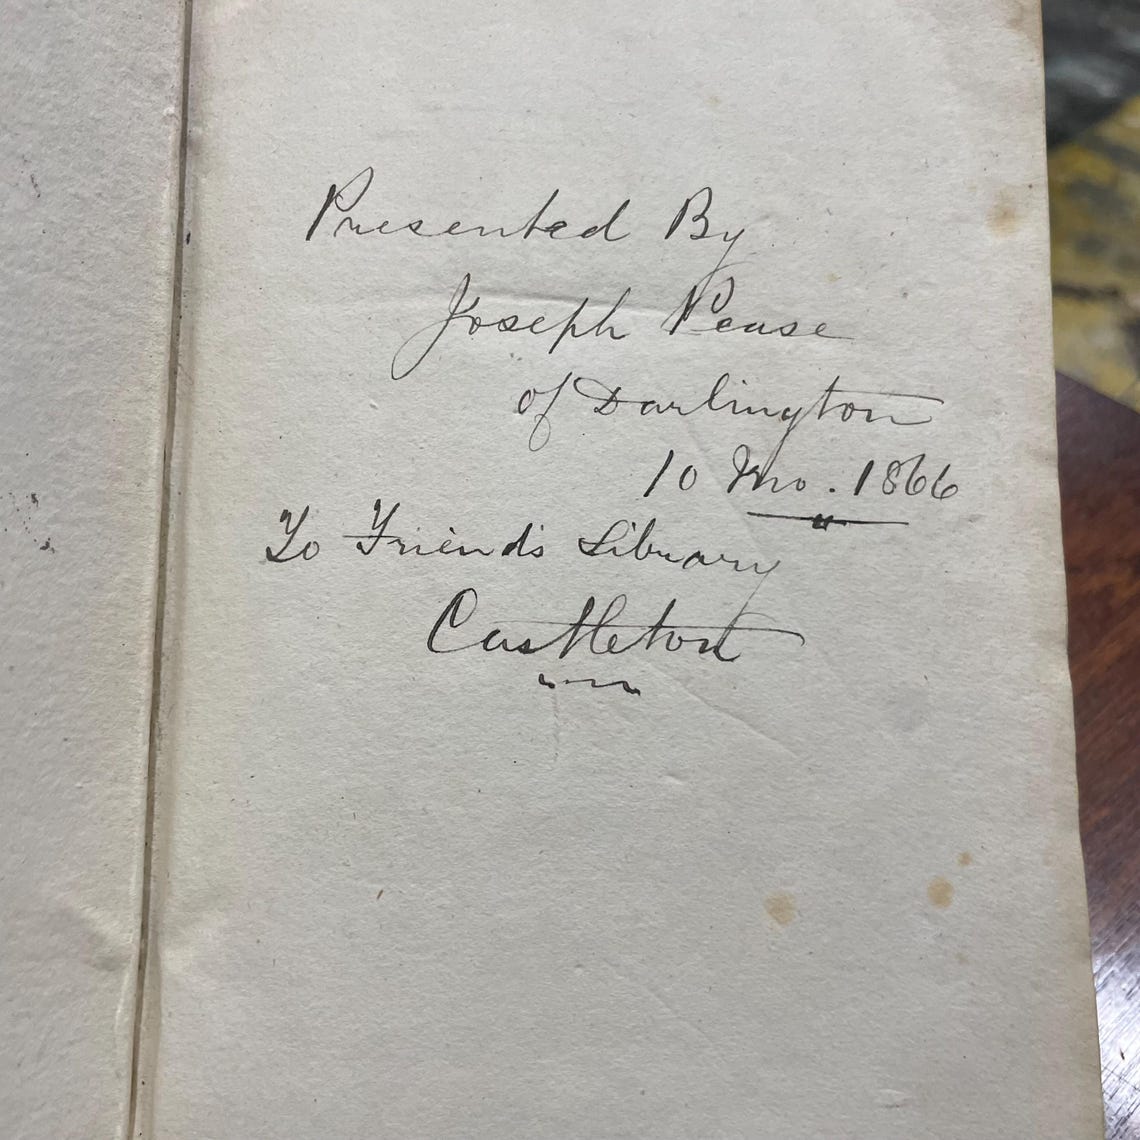 Presented By
Joseph Pease
of Darlington
10 Mo. 1866
To Friend's Library
Castleton